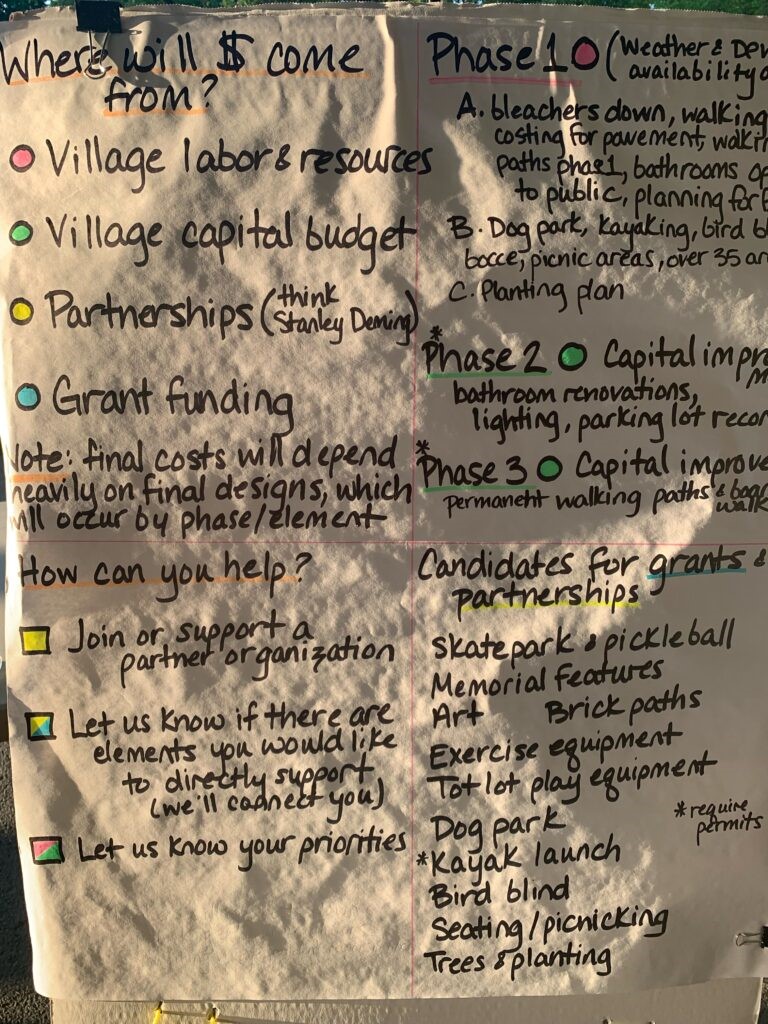 Where will $ come
from?
Village labor & resources
Village capital budget
Partnerships (think
Stanley Deming)
Grant funding
Note: final costs will depend
heavily on final designs, which
will occur by phase/element
How can you help?
Join or support a
partner organization
Let us know if there are
elements you would like
to directly support
(we'll connect you)
Let us know your priorities
Phase 1 (Weather & DPW
availability
A. bleachers down, walking
costing for pavement,
paths phase1, bathrooms
to public, planning for
B. Dog park, kayaking, bird
bocce, picnic areas, over 35
C. Planting plan
*Phase 2 Capital
bathroom renovations,
lighting, parking lot
*Phase 3 Capital
permanent walking paths &
walk
Candidates for grants &
partnerships
Skatepark & pickleball
Memorial features
Art Brick paths
Exercise equipment
Tot lot play equipment
Dog park
*require
permits
*Kayak launch
Bird blind
Seating/picnicking
Trees & planting